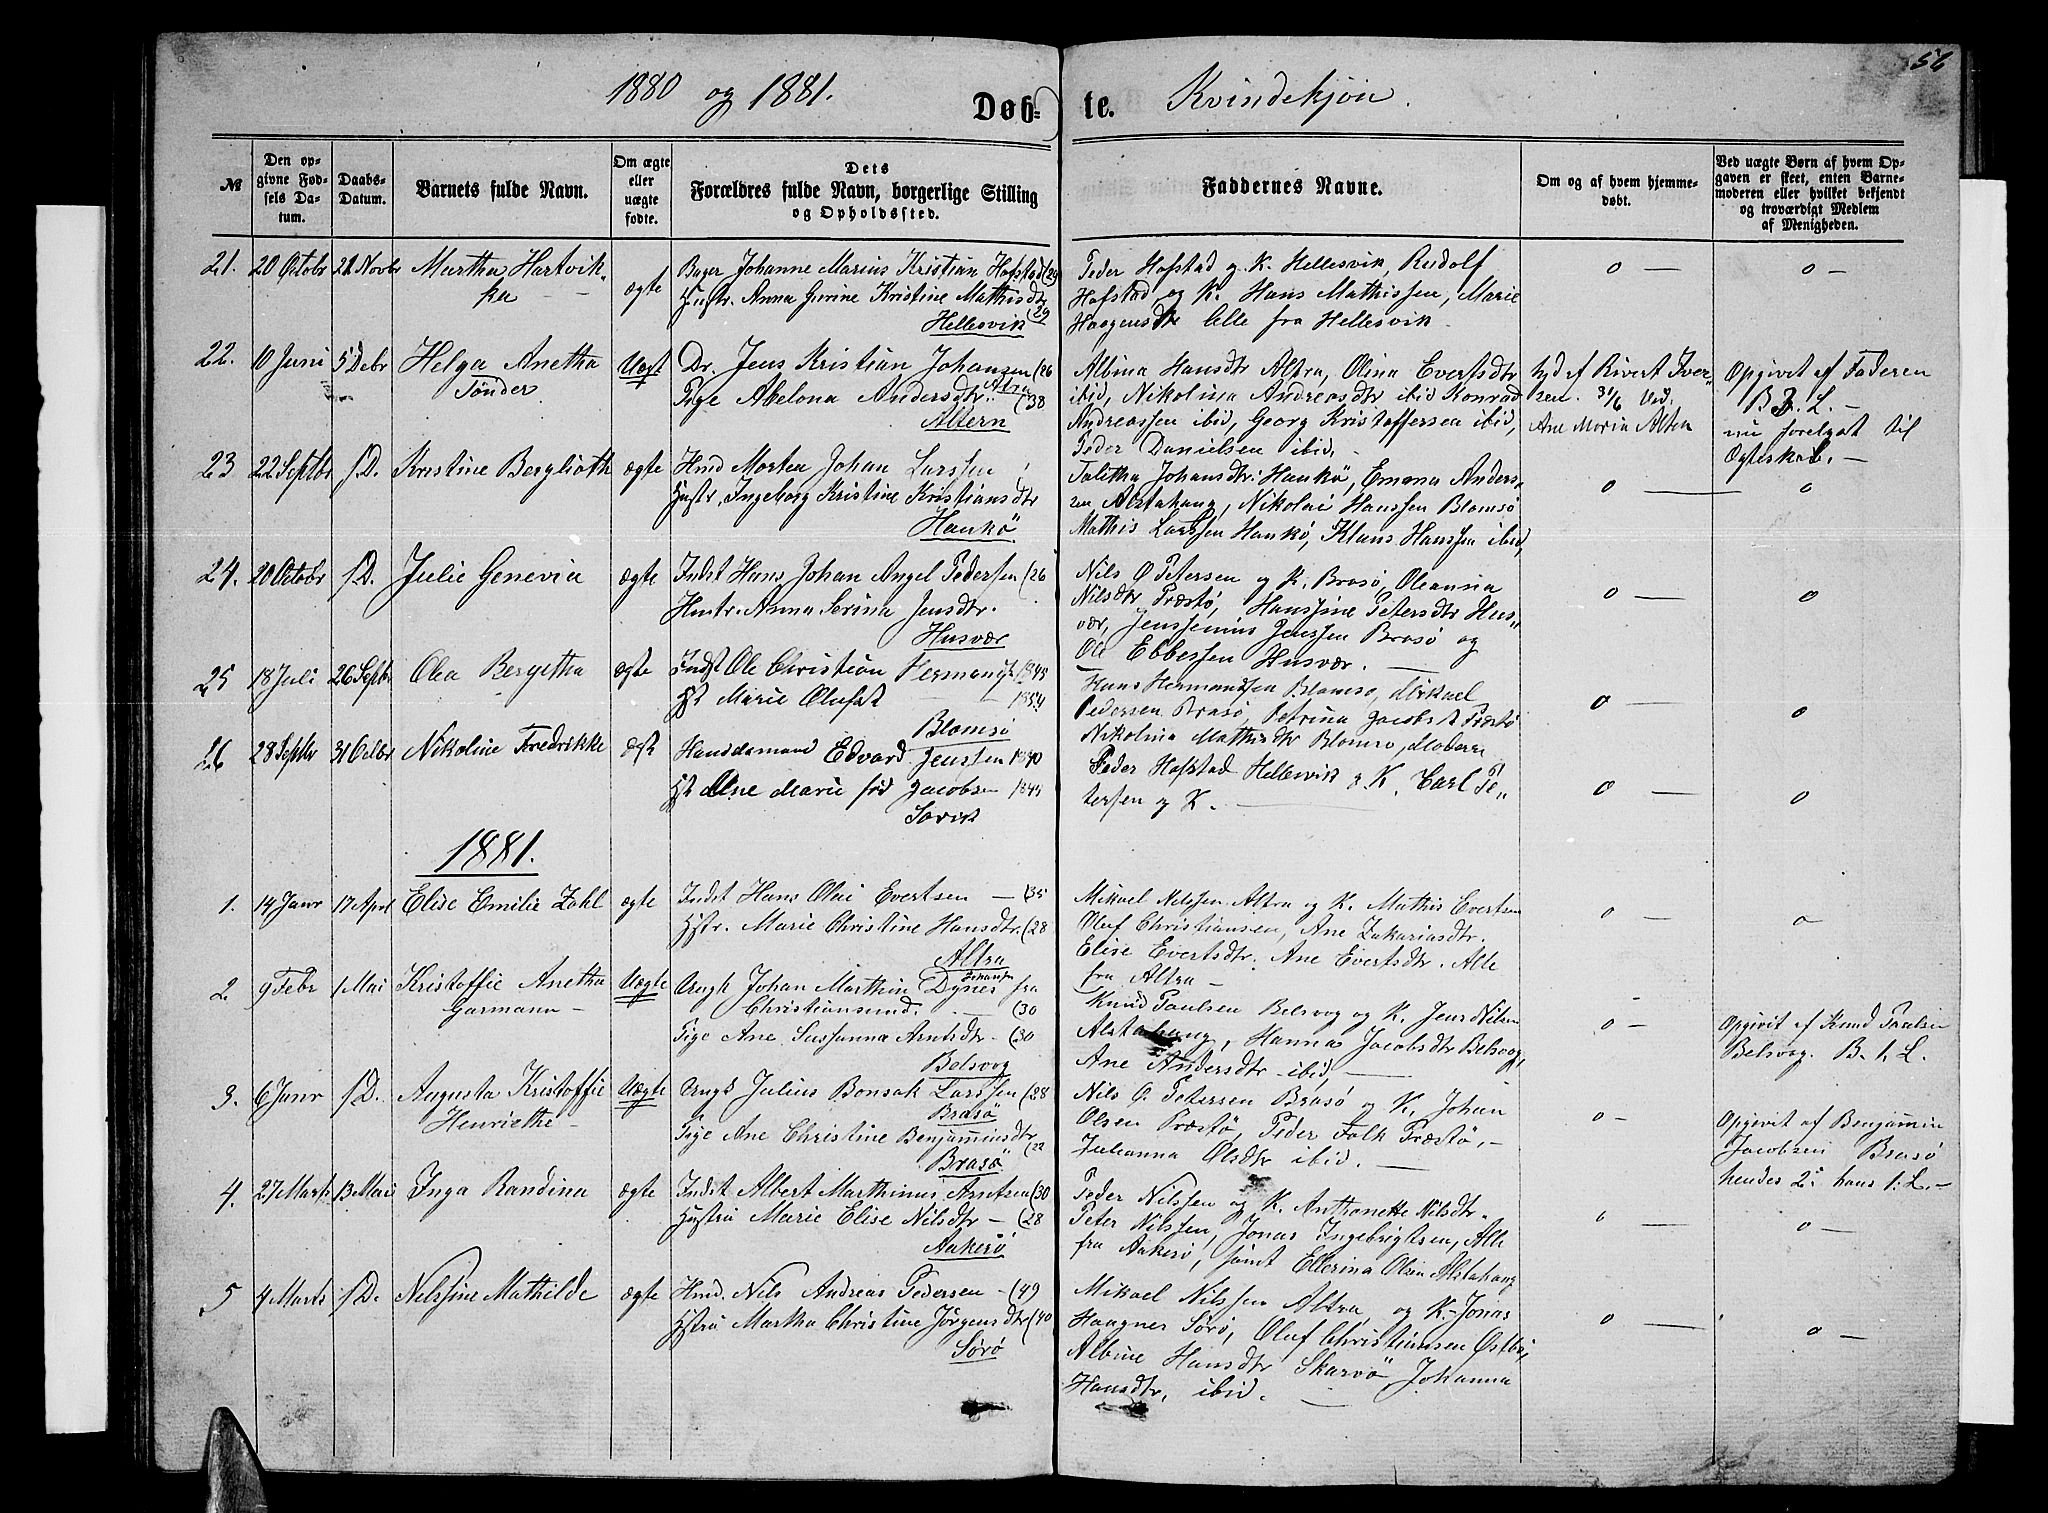 56
1880 og 1881.
Døb- te. Kvindekjøn.
№
Den opgivne Fødsels Datum.
Daabs-Datum.
Barnets fulde Navn.
Om ægte eller uægte fødte.
Dets Forældres fulde Navn, borgerlige Stilling og Opholdssted.
Faddernes Navne.
Om og af hvem hjemmedøbt.
Ved uægte Børn af hvem Opgaven er skeet, enten Barnemoderen eller hvilket bekjendt og troværdigt Medlem af Menigheden.
21. 20 Octobr 21 Novbr Martha Hartvik-
ka
ægte
Johanne Marius Kristian Hofstad (29
Hustr. Anna Gurine Kristine Mathisdtr (29
Hellesvik
Peder Hofstad og K. Hellesvik, Rudolf
Hofstad og K. Hans Mathissen, Marie
Haagensdtr alle fra Hellesvik
o — o —
22. 10 Juni 5 Debr Helga Anetha
Tønder
Uægt
Dr. Jens Kristian Johansen (26
Altra
Pige Abelona Andersdtr. (38
Altern
Albina Hansdtr Altra, Olina Evertsdtr
ibid, Nikolina Andreasdtr ibid Konrad
Andreassen ibid, Georg Kristoffersen ibid,
Peder Danielsen ibid. —
hjd af Sivert Iver-
sen 3/6 Ved.
Ane Maria Alten
Opgivet af Faderen
B. L. —
nu forelovet til
Ægteskab. —
23 22 Septbr s. D. Kristine Berglioth ægte Hmd Morten Johan Larssen
Hustr. Ingeborg Kristine Kristiansdtr
Haukö
Talitha Johansdtr. Haukö, Emma Anders-
sen Alstahaug, Nikolai Hanssen Blomsö
Mathis Larssen Haukö, Klaus Hanssen ibid,
o — o
24. 20 Octobr s. D. Julie Genevia ægte Indst Hans Johan Angel Pedersen (26
Hustr. Anna Serina Jensdtr.
Husvær
Nils O Petersen og K. Brasø, Oleanna
Nilsdtr Præstø, Hanssine Petersdtr Hus-
vær, Jenssenius Jenssen Brasø og
Ole Ebbessen Husvær. —
o — o
25 18 Juli 26 Septbr Olea Bergetha ægte Indst Ole Christian Hermands. 1845
Hst Marie Olufst 1854
Blomsö
Hans Hermandsen Blomsø, Mikael
Pedersen Brasø, Petrina Jacobsdt Præstø
Nikolina Mathisdtr Blomsø, Moderen
o — o
26 28 Septbr 31 Octbr Nikoline Fredrikke ægt Handelsmand Edvard Jenssen 1840
Hst Ane Marie fød Jacobsen 1845
Søvik
Peder Hofstad Hellesvik og K. Carl Pe-
tersen og K. —
o — o
1881.
1. 14 Janr 17 Aprl Elise Emilie Zahl ægte Indst Hans Olai Evertsen — (35
Hstr. Marie Christine Hansdtr. (28
Altra
Mikael Nilssen Altra og K. Mathis Evertsen
Oluf Christiansen, Ane Zakariasdtr.
Elise Evertsdtr. Ane Evertsdtr. Alle
fra Altra —
o — o
2. 9 Febr 1 Mai Kristoffie Anetha
Garmann —
Uægte
Ungk Johan Marthin Dynes Johansen fra
Christiansund. — (30
Pige Ane Sussanna Arntsdtr. (30
Belsvog
Knud Paulsen Belsvog og K. Jens Nilsen
Alstahaug, Hanna Jacobsdtr Belsvog,
Ane Andersdtr ibid, —
o —
Opgivet af Knud Paulsen
Belsvog. B. 1. L.
3. 6 Janr s. D. Augusta Kristoffie
Henriethe —
Uægte
Ungk Julius Bonsak Larssen (28
Brasö
Pige Ane Christine Benjaminsdtr (22
Brasö
Nils O. Petersen Brasø og K. Johan
Olsen Præstø, Peder Falk Præstø, —
Julianna Olsdtr ibid. —
o —
Opgivet af Benjamin
Jacobsen Brasø
hendes 2. hans 1. L. —
4. 27 Marts 13 Mai Inga Randina ægte Indst Albert Marthinus Arntsen (30
Hustru Marie Elise Nilsdtr — (28
Aakerö
Peder Nilssen og K. Anthonette Nilsdtr.
Peter Nilssen, Jonas Ingebrigtsen, Alle
fra Aakerö, samt Ellerina Olsen Alstahaug
o — o —
5 4 Marts s. D. Nelssine Mathilde ægte Hmd. Nils Andreas Pedersen — (49
Hstru Martha Christine Jörgensdtr (40
Sörö
Mikael Nilssen Altra, og K. Jonas
Haagner Sørø, Oluf Christiansen Østbø,
Albine Hansdtr Skarvö, Johanna
Hansdtr, ibid. —
o — o —